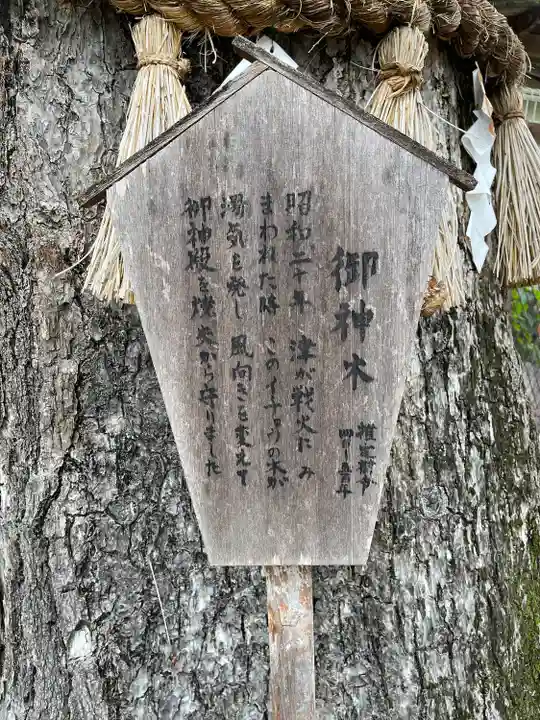 御神木
推定樹令
四〜五百年
昭和二十年 津が戦火にみ
まわれた時 このイチョウの木が
湯気を発し 風向きを変えて
御神殿を焼失から守りました